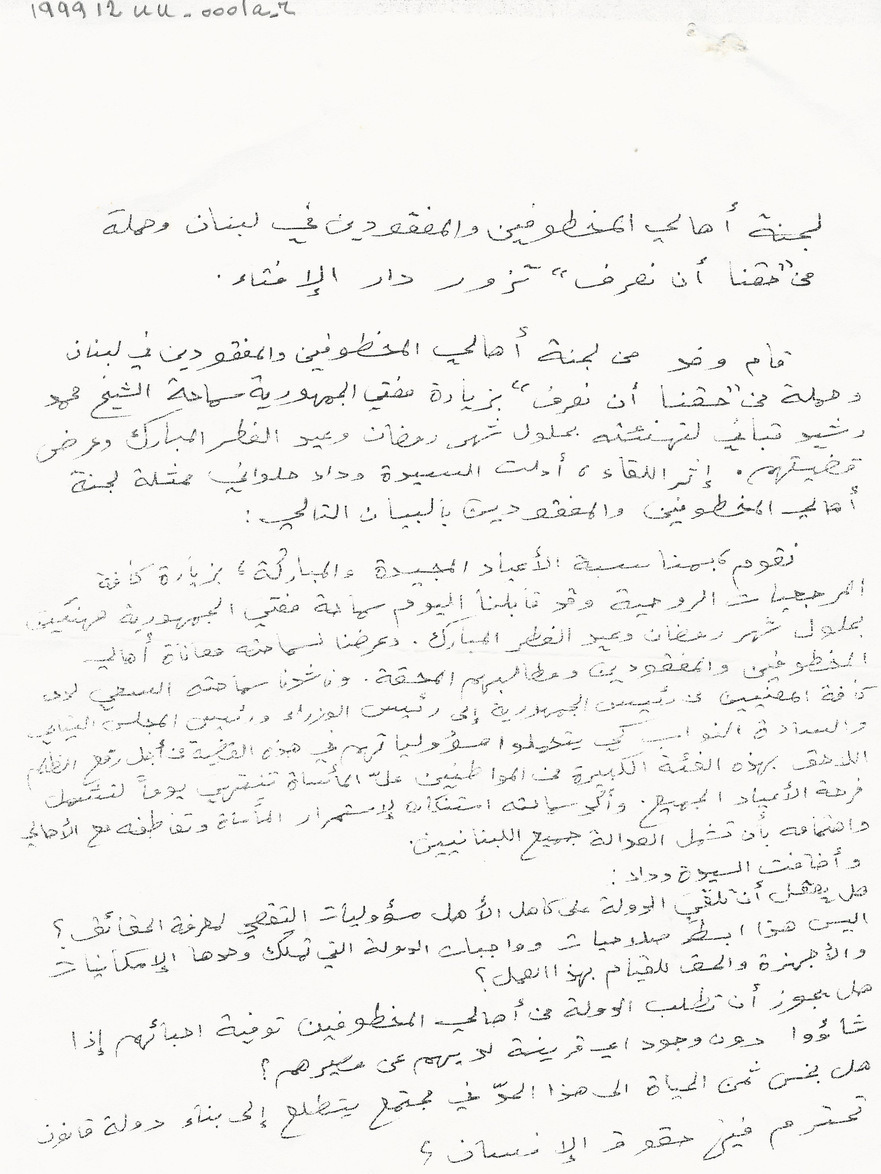 1999 12 uu - 000/a_r
لجنة أهالي المخطوفين والمفقودين في لبنان وحملة
من "حقنا أن نعرف" تزور دار الإفتاء.
قام وفد من لجنة أهالي المخطوفين والمفقودين في لبنان
وحملة من "حقنا أن نعرف" بزيارة مفتي الجمهورية سماحة الشيخ محمد
رشيد قباني لتهنئته بحلول شهر رمضان وعيد الفطر المبارك وعرض
قضيتهم. إثر اللقاء، أدلت السيدة وداد حلواني ممثلة لجنة
أهالي المخطوفين والمفقودين بالبيان التالي:
نقوم، بمناسبة الأعياد المجيدة والمباركة، بزيارة كافة
المرجعيات الروحية وقد قابلنا اليوم سماحة مفتي الجمهورية مهنئين
بحلول شهر رمضان وعيد الفطر المبارك. وعرضنا لسماحته معاناة أهالي
المخطوفين والمفقودين ومطالبهم المحقة. وناشدنا سماحته السعي لدى
كافة المعنيين من رئيس الجمهورية إلى رئيس الوزراء ورئيس المجلس النيابي
والسادة النواب كي يتحملوا مسؤولياتهم في هذه القضية من أجل رفع الظلم
اللاحق بهذه الفئة الكبيرة من المواطنين علّ المأساة تنتهي يوماً لتشمل
فرحة الأعياد الجميع. وأكد سماحته استنكاره لإستمرار المأساة وتعاطفه مع الأهالي
واهتمامه بأن تشمل العدالة جميع اللبنانيين.
وأضافت السيدة وداد:
هل يعقل أن تلقي الدولة على كاهل الأهل مسؤوليات التقصي لمعرفة الحقائق؟
اليس هذا ابسط صلاحيات وواجبات الدولة التي تملك وحدها الإمكانيات
والأجهزة والحق للقيام بهذا العمل؟
هل يجوز أن تطلب الدولة من أهالي المخطوفين توفية احبائهم إذا
شاؤوا دون وجود اي قرينة لديهم عن مصيرهم؟
هل بخس ثمن الحياة الى هذا الحدّ في مجتمع يتطلع إلى بناء دولة قانون
تحترم فيه حقوق الإنسان؟